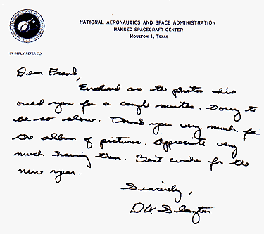 NATIONAL AERONAUTICS AND SPACE ADMINISTRATION
MANNED SPACECRAFT CENTER
HOUSTON 1, TEXAS
IN REPLY REFER TO:
Dear Frank,
Enclosed are the photos I've
owed you for a couple months. Sorry to
be so slow. Thank you very much for
the album of pictures. Appreciate very
much having them. Best wishes for the
new year.
Sincerely,
D K Slayton